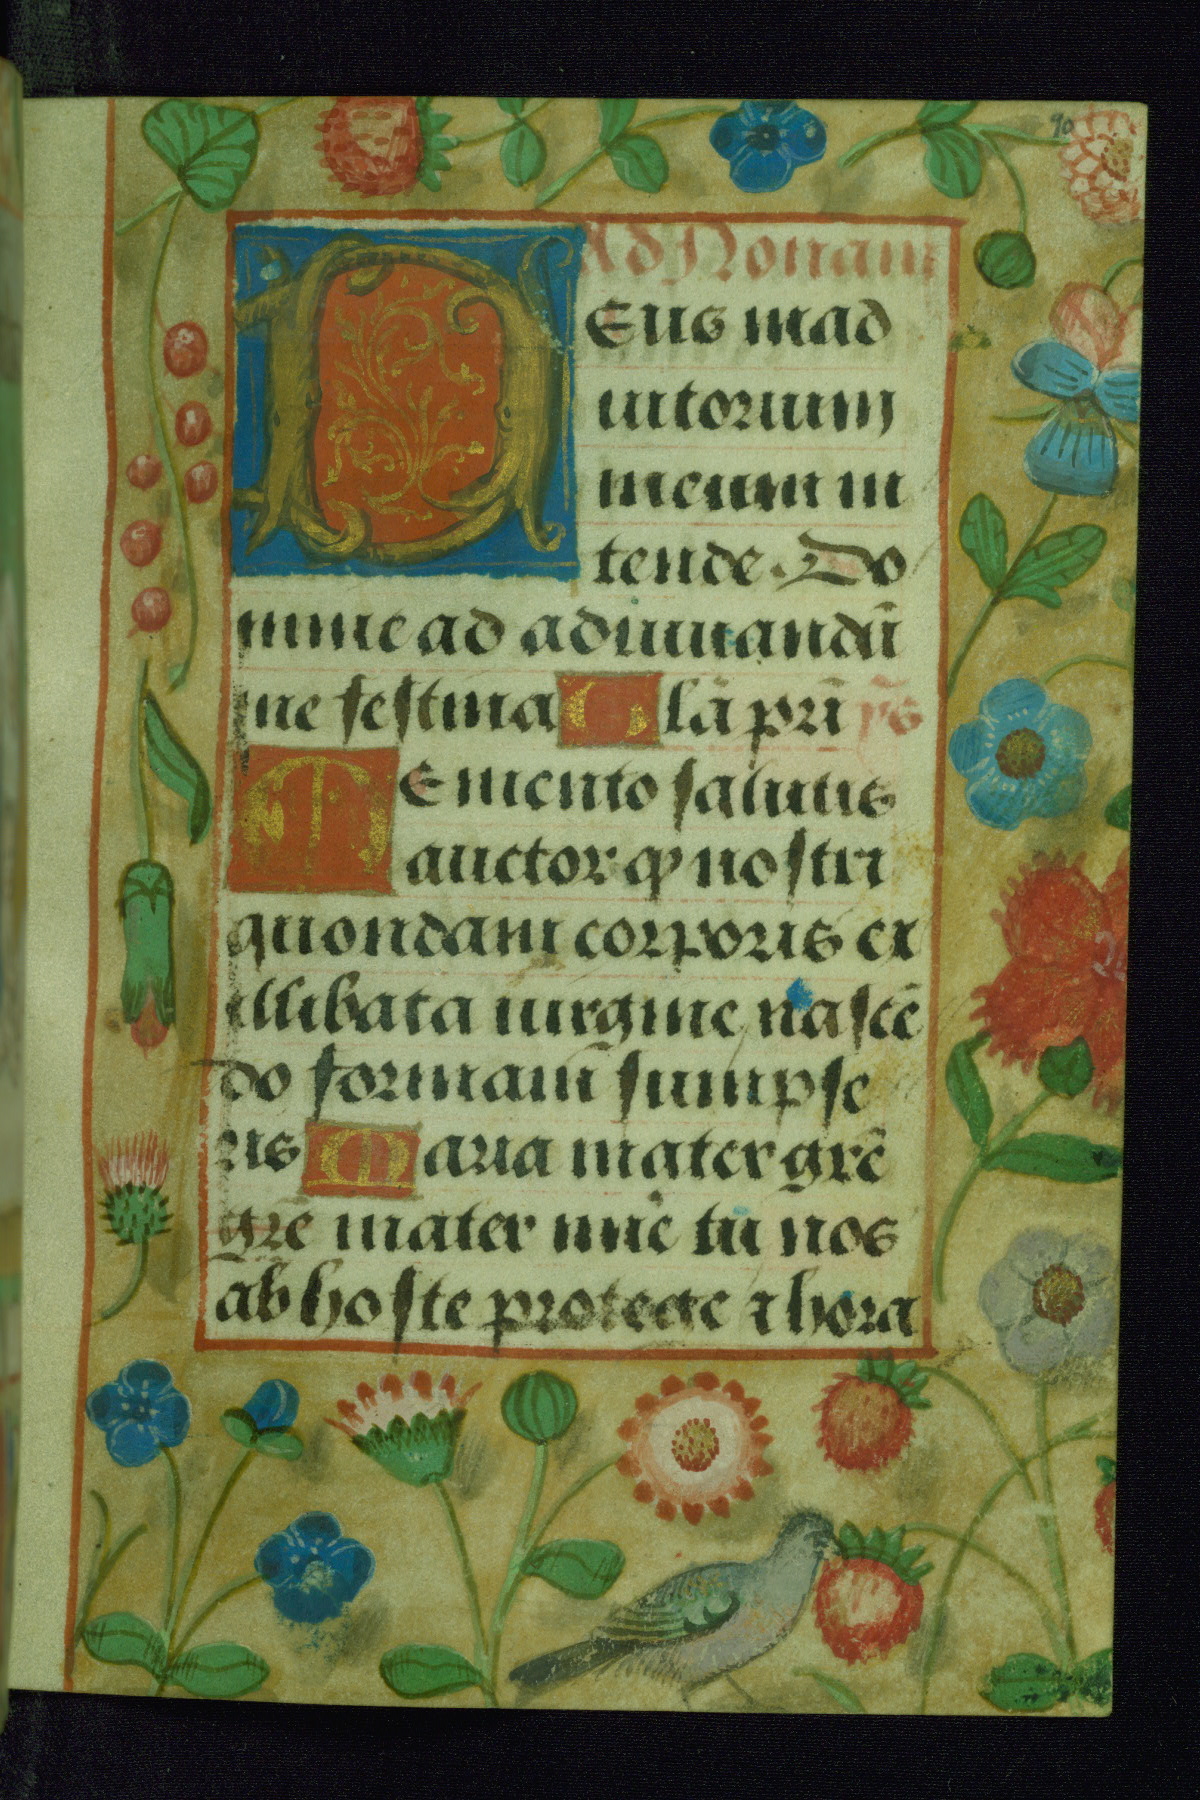 90
Ad Nonam
DEus in ad
iutorium
meum in
tende. Do
mine ad adiuuandū
me festina Glā pr̄i ps̄
MEmento salutis
auctor qꝫ nostri
quondam corporis ex
illibata uirgine nascē
do formam sumpse
ris Maria mater grē
gre mater mīe tu nos
ab hoste protege ⁊ hora